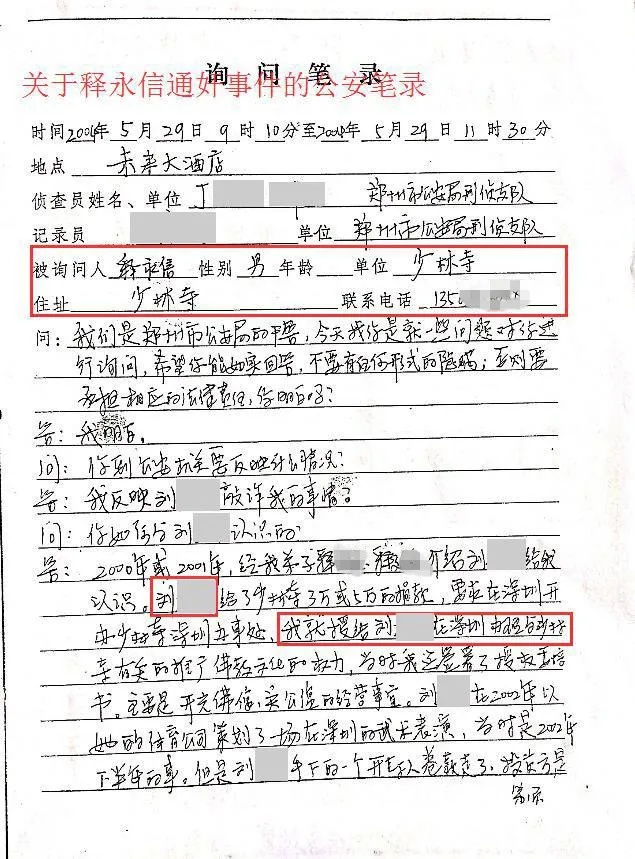 询 问 笔 录
关于释永信通奸事件的公安笔录
时间2004年5月29日9时10分至2004年5月29日11时30分
地点 未来大酒店
侦查员姓名、单位 丁 郑州市公安局刑侦支队
记录员 单位 郑州市公安局刑侦支队
被询问人 释永信 性别 男 年龄 单位 少林寺
住址 少林寺 联系电话 135
问：我们是郑州市公安局的干警，今天我们是就一些问题对你进
行询问，希望你能如实回答，不要有任何形式的隐瞒，否则要
承担相应的法律责任，你明白吗？
答：我明白。
问：你到公安机关要反映什么情况？
答：我反映刘 敲诈我的事情？
问：你如何与刘 认识的
答：2000年或2001年，经我弟子释 释 介绍刘 给我
认识。刘 给了少林寺3万或5万的捐款，要求在深圳开
办少林寺深圳办事处，我就授给刘 在深圳办理与少林
寺有关的推广佛教文化的权力，当时我还签署了授权委培
书。主要是开光佛像、卖公德的经营事宜。刘 在2002年以
她的体育公司策划了一场在深圳的武术表演，当时是2002年
下半年的事。但是刘 手下的一个 卷款走了，投资方是